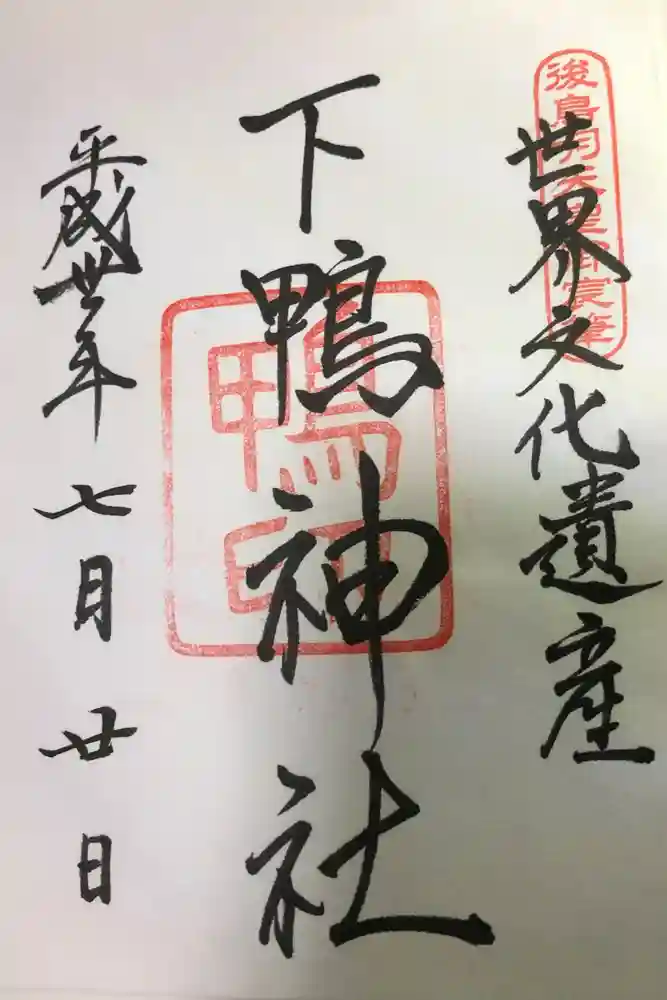 後鳥羽天皇御宸筆
世界文化遺産
下鴨神社
鴨
平成丗年七月廿日